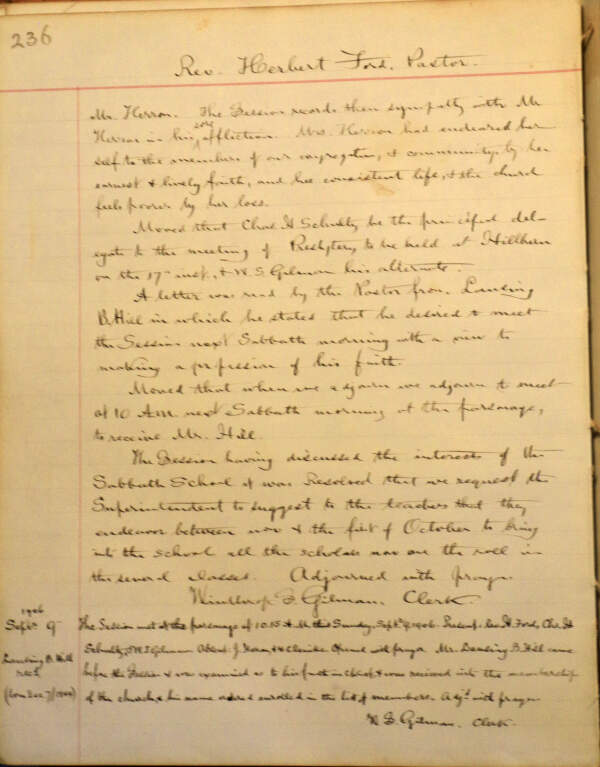 236
Rev. Herbert Ford, Pastor.
Mr. Herron. The Session records their sympathy with Mr
Herron in his sore affliction. Mrs. Herron had endeared her
self to the members of our congregation, & community, by her
earnest & lively faith, and her consistent life, & the church
feels poorer by her loss.
Moved that Chas. H Schultz be the principal del-
egate to the meeting of Presbytery to be held at Hillburn
on the 17th inst, & W. S. Gilman his alternate.
A letter was read by the Pastor from Lansing
B. Hill in which he states that he desired to meet
the Session next Sabbath morning with a view to
making a profession of his faith.
Moved that when we adjourn we adjourn to meet
at 10 A.M. next Sabbath morning at the parsonage,
to receive Mr. Hill.
The Session having discussed the interests of the
Sabbath School it was Resolved that we request the
Superintendent to suggest to the teachers that they
endeavor between now & the first of October to bring
into the school all the scholars now on the roll in
the several classes. Adjourned with prayer.
Winthrop S. Gilman, Clerk.
1906
Septr 9
The Session met at the parsonage at 10.15 A M this Sunday, Septr 9, 1906. Present: Rev. H. Ford, Chs. H
Schultz, & W. S. Gilman Absent J. & Opened with prayer. Mr. Lansing B. Hill came
Lansing B. Hill
before the Session & was examined as to his faith in Christ & was received into the membership
recd
of the church, & his name ordered enrolled in the list of members. Adjd with prayer
(born Dec. 7/
W. S. Gilman, Clerk.